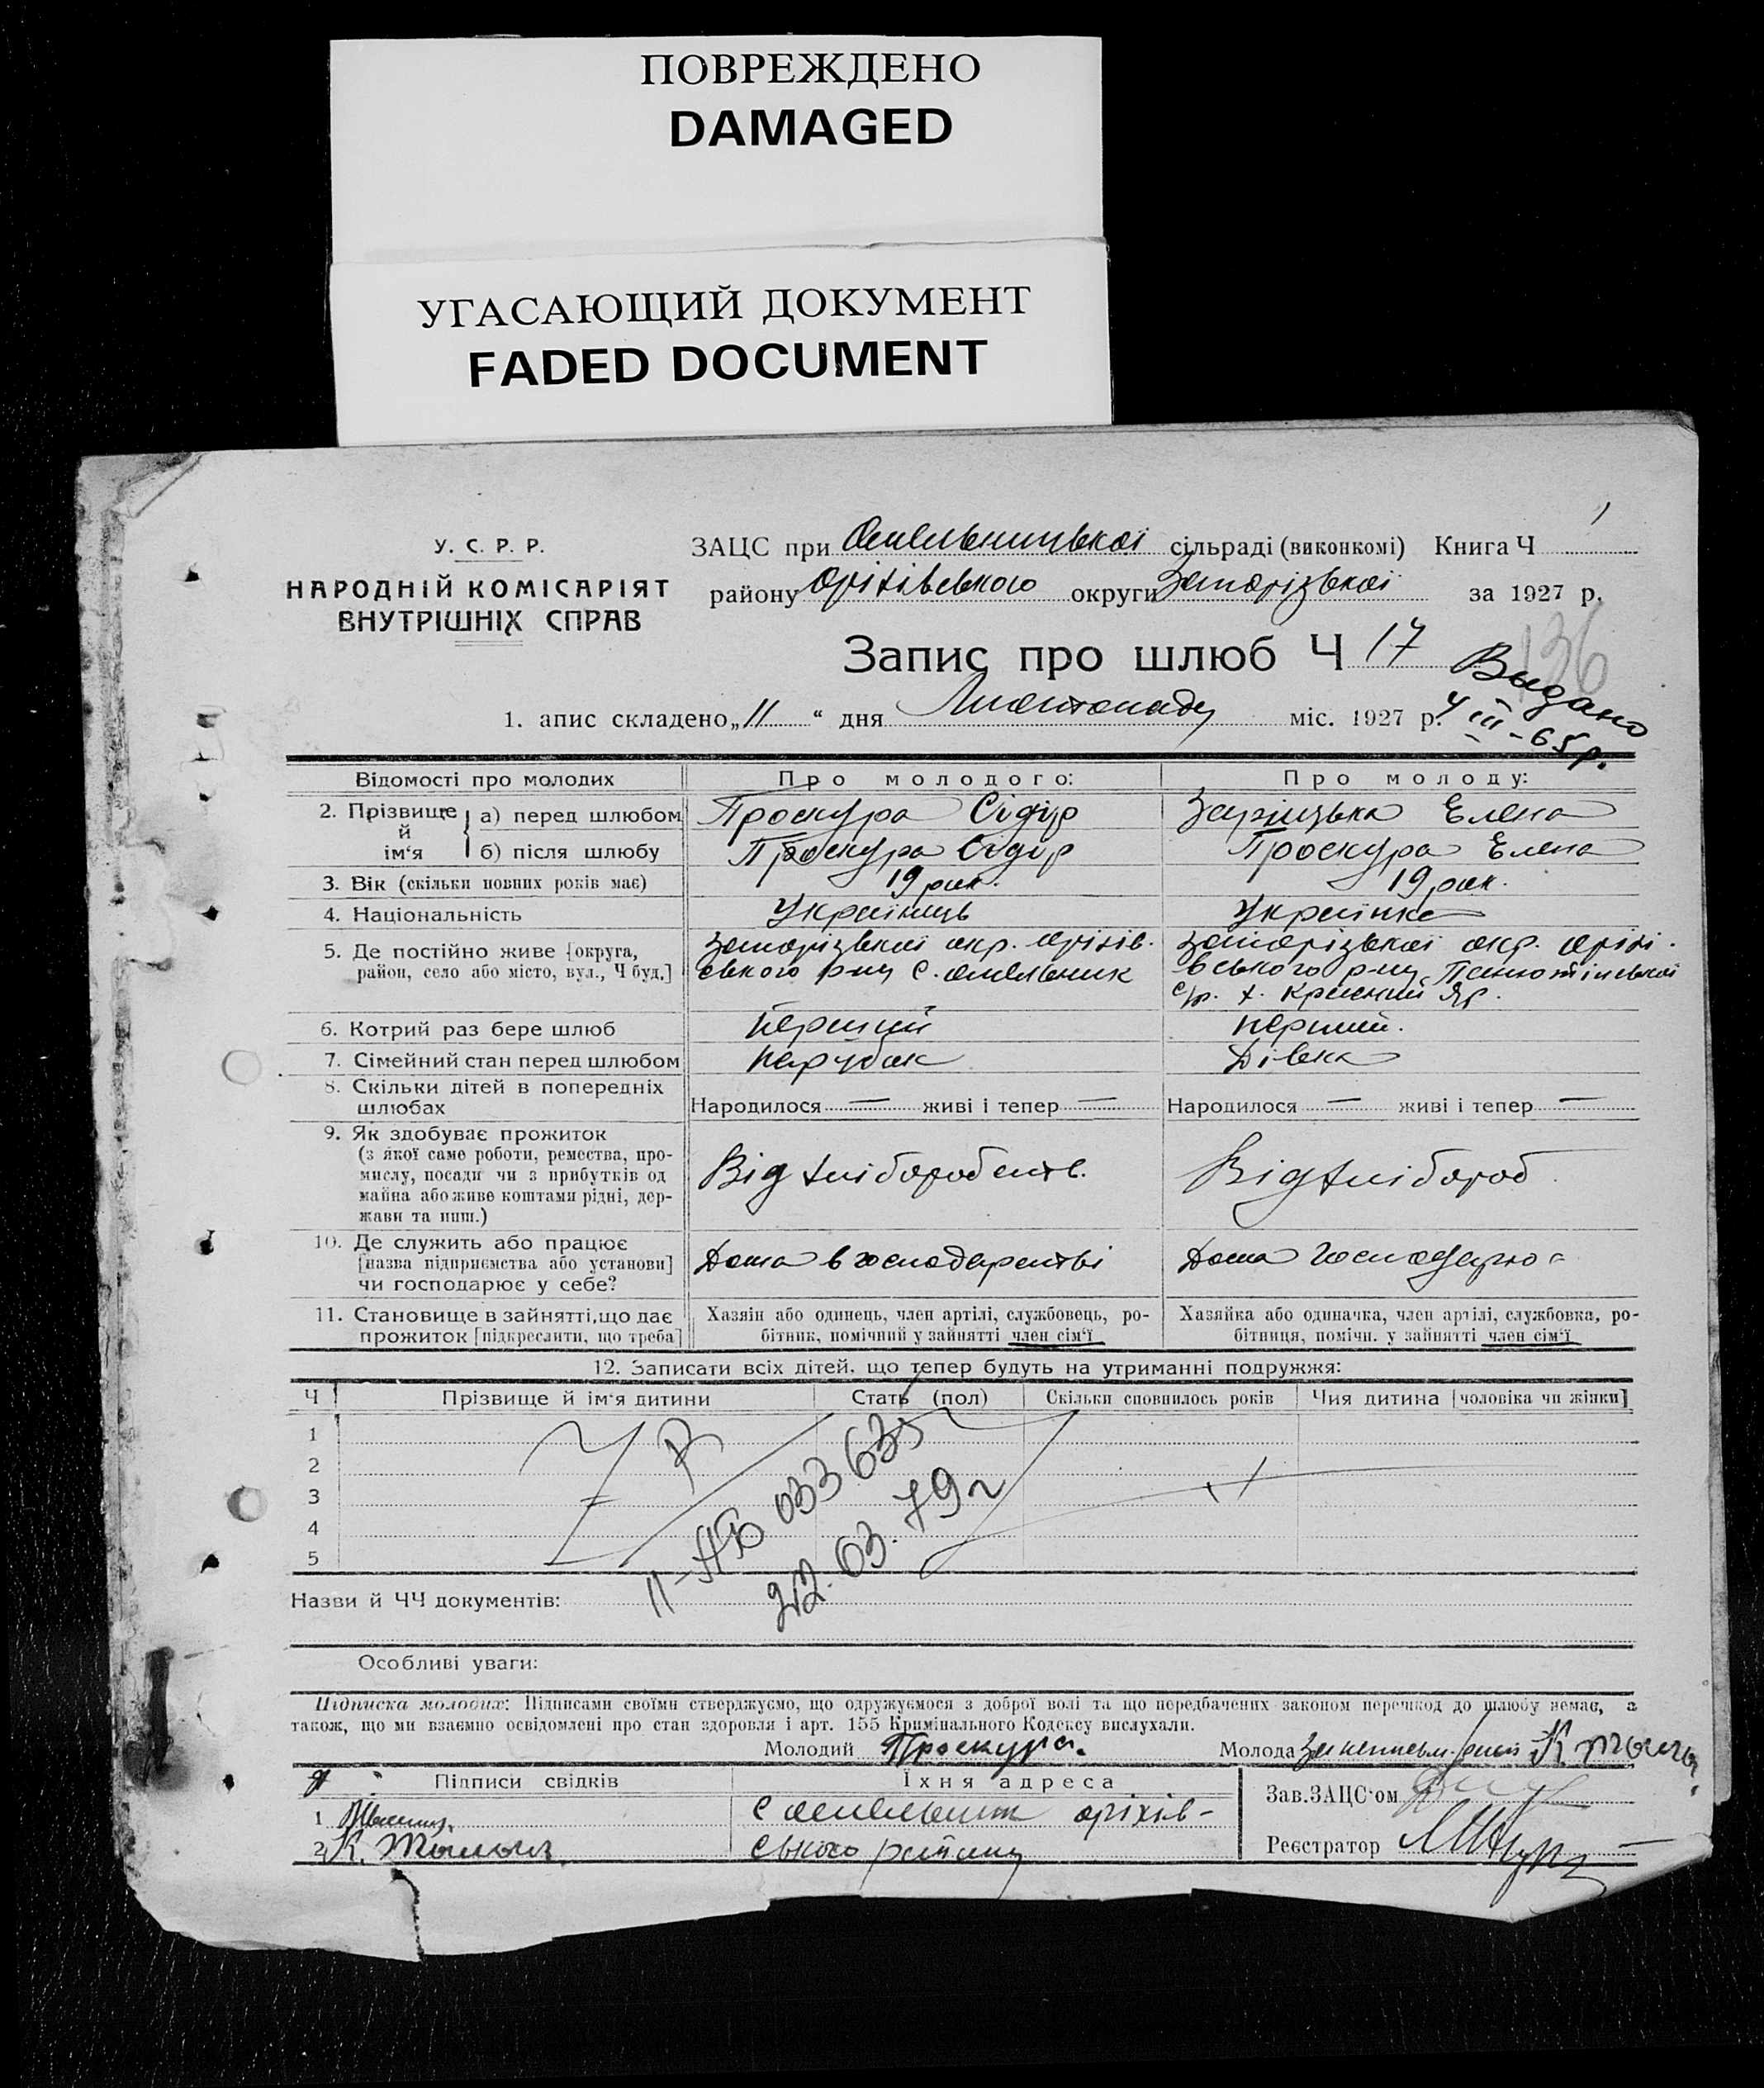 ПОВРЕЖДЕНО
DAMAGED
УГАСАЮЩИЙ ДОКУМЕНТ
FADED DOCUMENT
У. С. Р. Р.
НАРОДНІЙ КОМІСАРІЯТ
ВНУТРІШНІХ СПРАВ
ЗАЦС при Омельницької сільраді (виконкомі) Книга Ч 1
району Оріхівського округи Запорізької за 1927 р.
136
Запис про шлюб Ч 17
Выдано
4 III-65р.
1. апис складено „11“ дня Листопаду міс. 1927 р.
Відомості про молодих Про молодого: Про молоду:
2. Прізвище й ім‘я
а) перед шлюбом Проскура Сидір Заріцька Елена
б) після шлюбу Проскура Сидір Проскура Елена
3. Вік (скільки повних років має) 19 рок. 19 рок.
4. Національність Українець Українка
5. Де постійно живе [округа, район, село або місто, вул., Ч буд.]
Запорізької окр. Оріхів-
ського р-ну с. Омельник
Запорізької окр. Оріхі-
вського р-ну
с/р. х. Красний Яр.
6. Котрий раз бере шлюб Перший Перший.
7. Сімейний стан перед шлюбом Парубок Дівка
8. Скільки дітей в попередніх шлюбах
Народилося — живі і тепер — Народилося — живі і тепер —
9. Як здобуває прожиток
(з якої саме роботи, ремества, про-
мислу, посади чи з прибутків од
майна або живе коштами рідні, дер-
жави та инш.)
Від хліборобств. Від хлібороб
10. Де служить або працює
[назва підприємства або установи]
чи господарює у себе?
Дома в господарстві Дома господарює
11. Становище в зайнятті, що дає
прожиток [підкреслити, що треба]
Хазяін або одинець, член артілі, службовець, ро-
бітник, помічний у зайнятті член сім‘ї
Хазяйка або одиначка, член артілі, службовка, ро-
бітниця, помічн. у зайнятті член сім‘ї
12. Записати всіх дітей, що тепер будуть на утриманні подружжя:
Ч Прізвище й ім‘я дитини Стать (пол) Скільки сповнилось років Чия дитина [чоловіка чи жінки]
1
2
3
4
5
II-ЯБ 033635
22.03.79г
Назви й ЧЧ документів:
Особливі уваги:
Підписка молодих: Підписами своїми стверджуємо, що одружуємося з доброї волі та що передбачених законом перешкод до шлюбу немає, а
також, що ми взаємно освідомлені про стан здоровля і арт. 155 Кримінального Кодексу вислухали.
Молодий Проскура. Молода
Підписи свідків Їхня адреса
1 с Омельник Оріхів-
2 К. ського району
Зав. ЗАЦС‘ом
Реєстратор